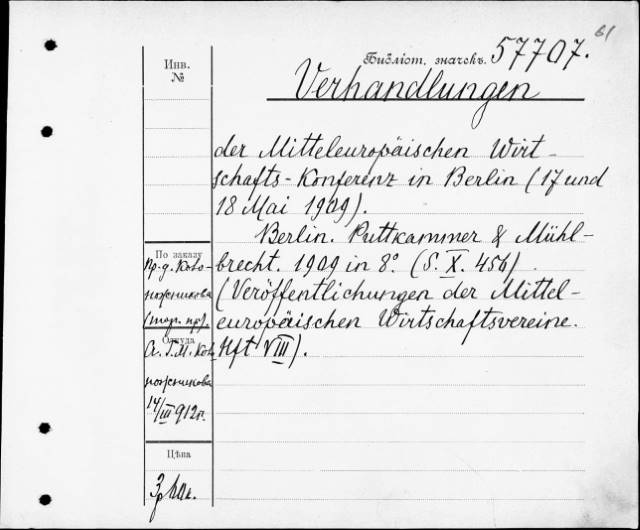 61
Библіот. значекъ. 57707.
Инв.
№
Verhandlungen
der Mitteleuropäischen Wirt-
schafts-Konferenz in Berlin (17 und
18 Mai 1909).
Berlin. Puttkammer & Mühl-
brecht. 1909 in 8° (S. X. 456)
(Veröffentlichungen der Mittel-
europäischen Wirtschaftsvereine.
Hft VIII).
По заказу
Пр-д. Ково-
Откуда
А. Г. М. Ков
14/III 912 г.
Цѣна
3 р.